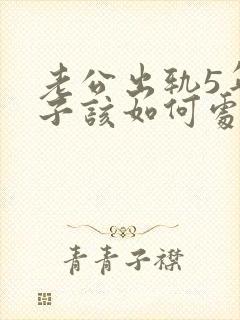 老公出轨5年
子該如何處
青青子襟